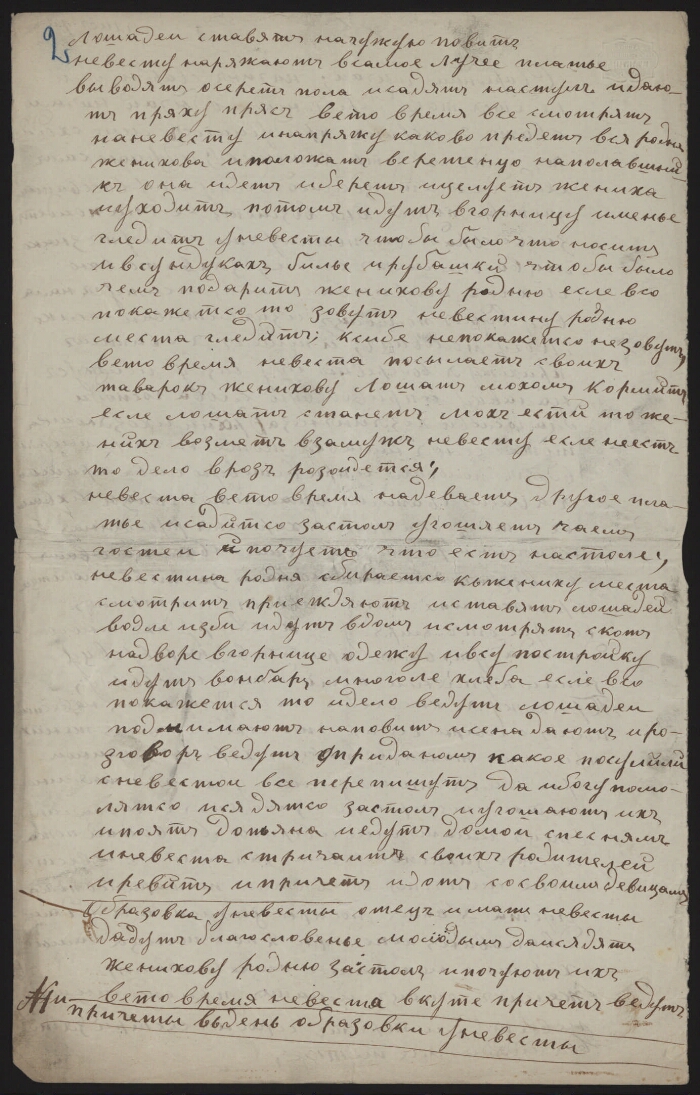 2
лошадеи ставятъ начужую повить
невесту наряжаютъ всамое лучее платье
выводятъ осереть пола исадятъ настулъ идаю-
тъ пряху прясь вето время все смотрятъ
наневесту инапряжу каково предетъ вся родня
женихова иположатъ веретенцо наполавшни-
къ она идетъ иберетъ ицелуетъ жениха
иуходитъ потомъ идутъ вгорницу именье
гледитъ уневесты чтобы было что носить
ивсундукахъ билье ирубашки чтобы было
чемъ подарить женихову родню если всо
покажетсо то зовутъ невестину родню
места гледить; кабе непокажетсо незовутъ,
вето время невеста посылаетъ своихъ
таварокъ женихову лошать мохомъ кормить
есле лошать станетъ мохъ ести то же-
нихъ возметъ взамужъ невесту есле неестъ
то дело врозь розоидетсея;
невеста вето время надеваетъ другое пла-
тье исадитсо застолъ угошяетъ чаемъ
гостеи ипочуетъ что есть настоле;
невестина родня сбираетсо къжениху места
смотрить приежджяютъ иставятъ лошадей
водле изби идутъ вдомъ исмотрятъ скотъ
надворе вгорнице одежу ивсу постройку
идутъ вонбаръ многоле хлеба есле всо
покажется то идело ведутъ лошадеи
поднимаютъ наповить исенадаютъ иро-
зговоръ ведутъ оприданомъ какое посулили
сневестои все перепишутъ да ибогу помо-
лятсо исядятсо застолъ иугошаютъ ихъ
ипоятъ допьяна иедутъ домои спеснямъ
иневеста стричаитъ своихъ родителей
иревитъ ипричетъ идотъ сосвоима девицамъ
Образовка уневесты отецъ имать невесты
дадутъ благословенье молодымъ даисядятъ
женихову родню застолъ ипочуютъ ихъ
вето время невеста вкуте причетъ ведутъ
причеты вьдень образовки уневесты